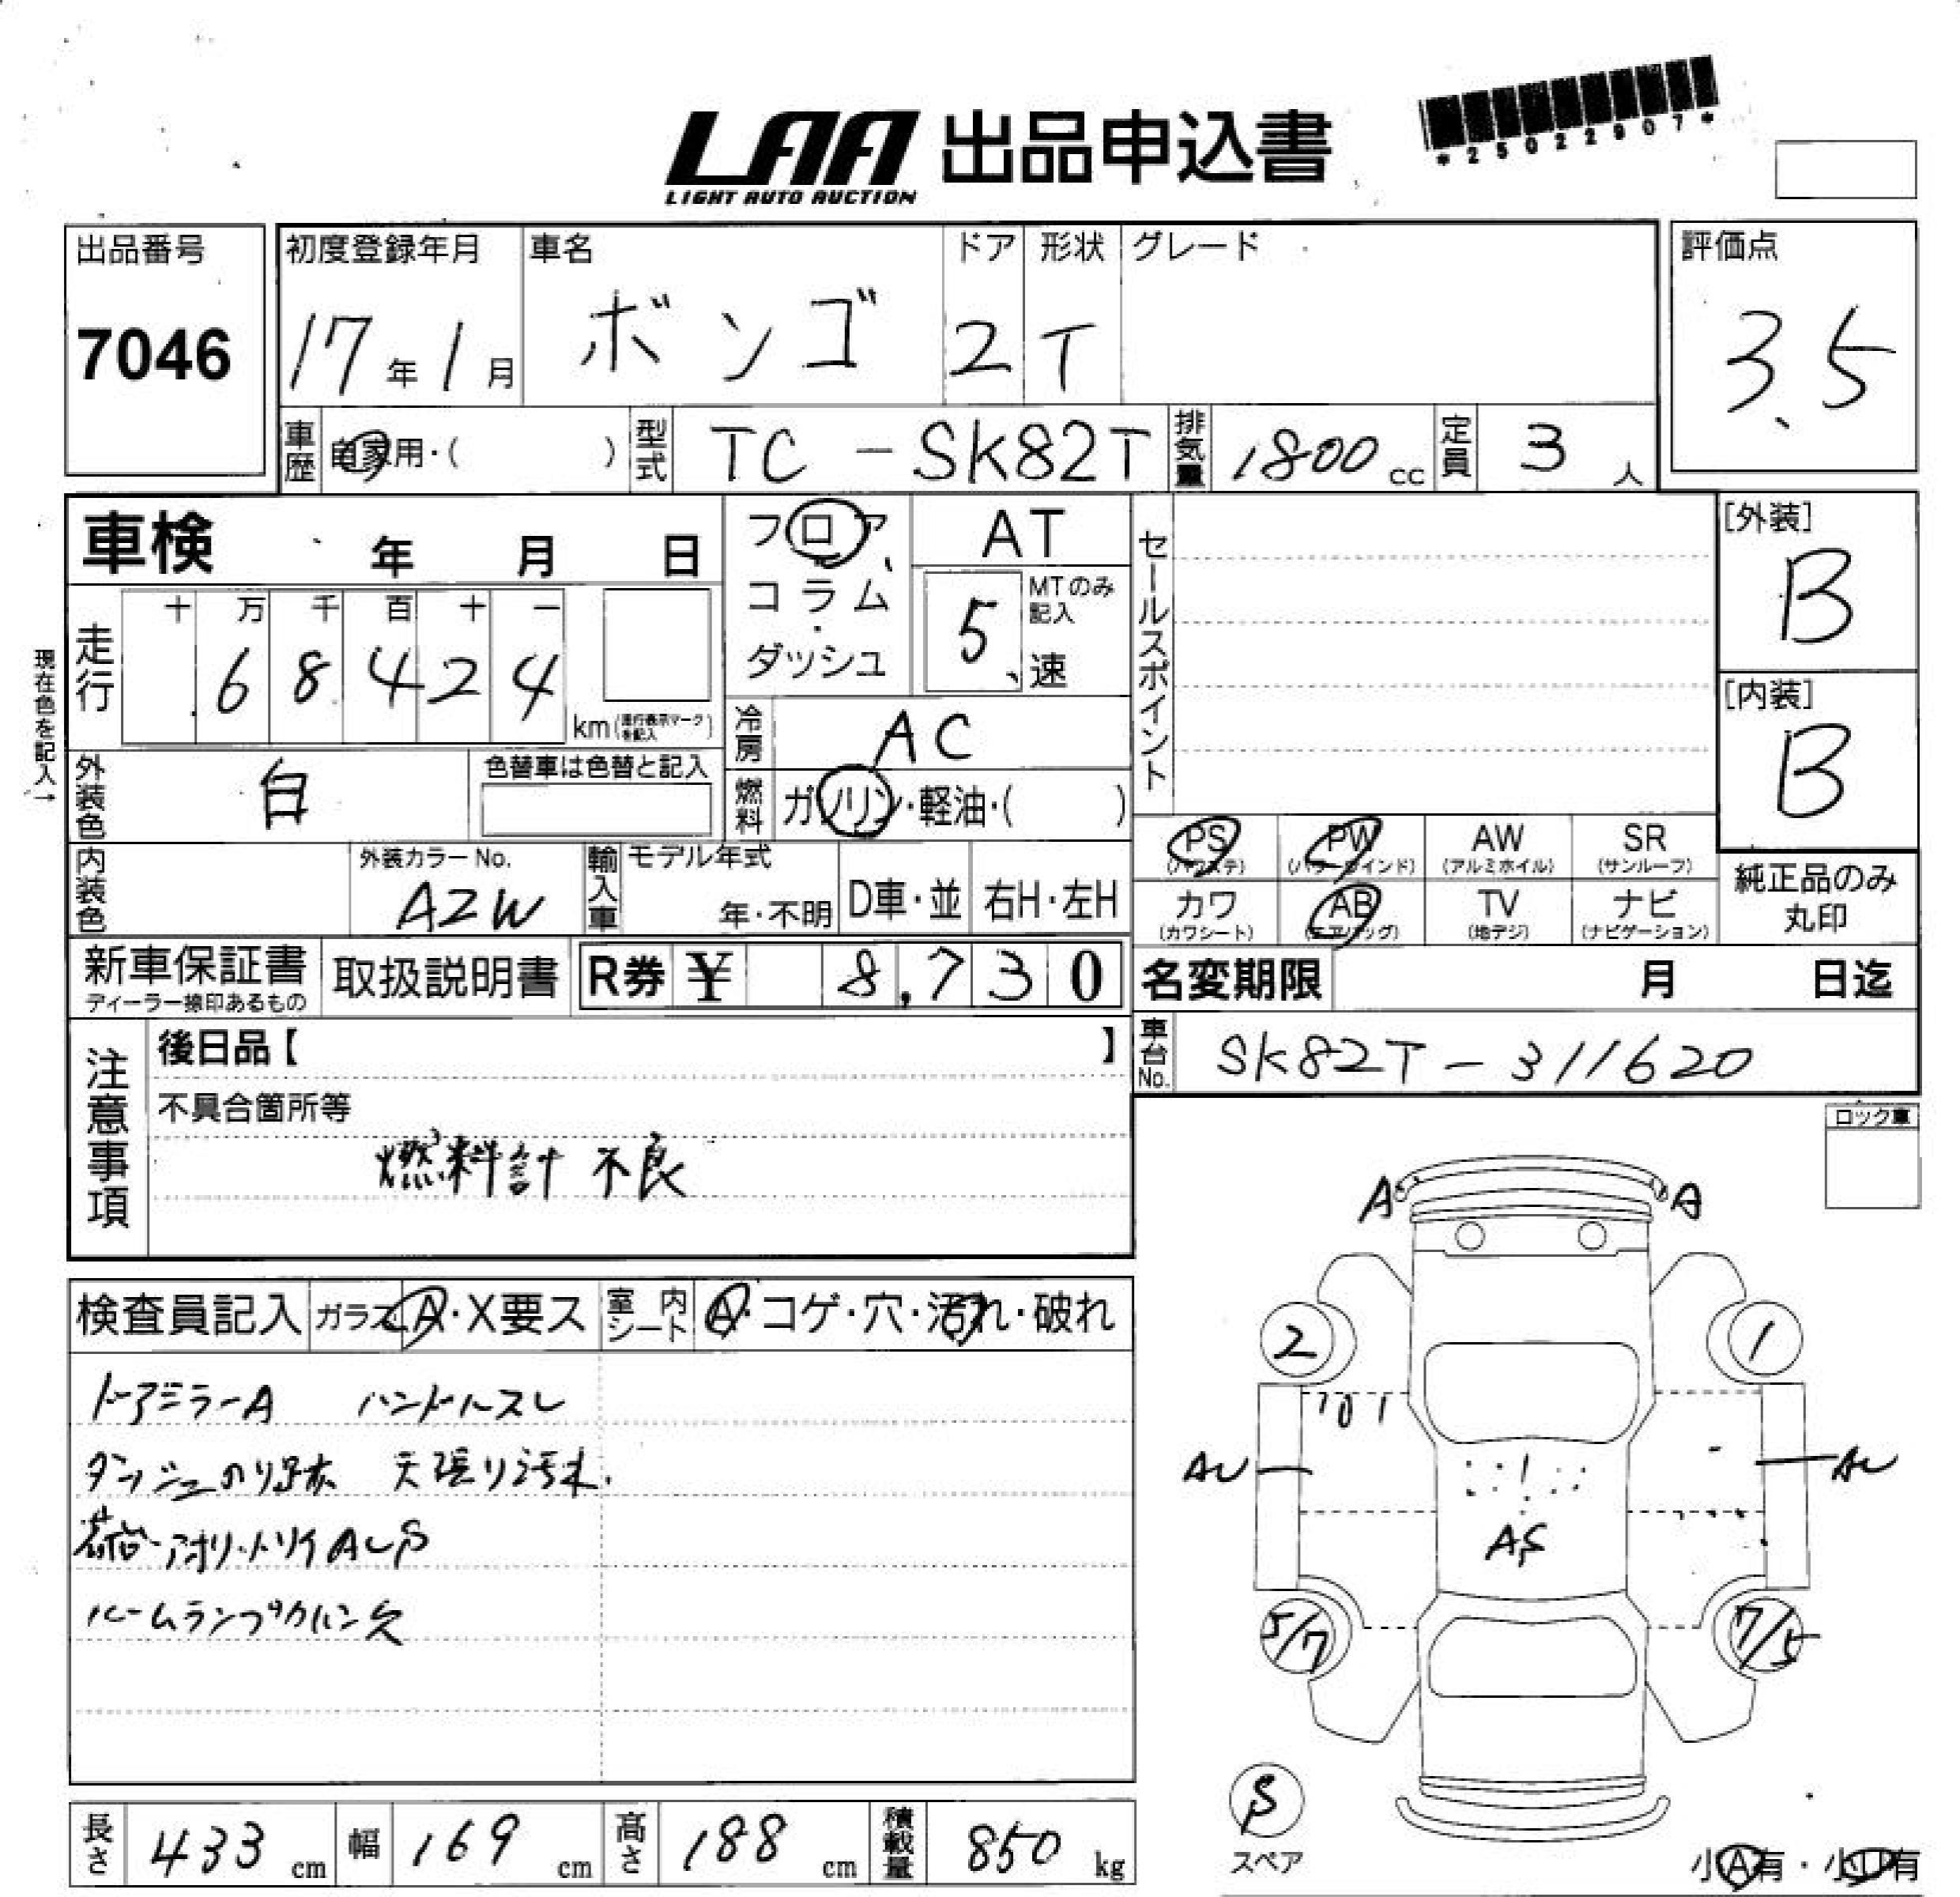 LAA 出品申込書
LIGHT AUTO AUCTION
*25022907*
出品番号
7046
初度登録年月
17年1月
車名
ボンゴ
ドア
2
形状
T
グレード
評価点
3.5
車歴 自家用・( )
型式 TC-SK82T
排気量 1800 cc
定員 3 人
車検 年 月 日
フロア
コラム
ダッシュ
AT
MTのみ記入
5速
セールスポイント
[外装]
B
[内装]
B
現在色を記入→
走行
十 万 千 百 十 一
6 8 4 2 4
km (走行表示マークを記入)
冷房 AC
燃料 ガソリン・軽油・( )
外装色 白
色替車は色替と記入
内装色
外装カラーNo.
A2W
輸入車
モデル年式
年・不明
D車・並
右H・左H
PS
(パワステ)
PW
(パワーウインド)
AW
(アルミホイル)
SR
(サンルーフ)
カワ
(カワシート)
AB
(エアバッグ)
TV
(地デジ)
ナビ
(ナビゲーション)
純正品のみ
丸印
新車保証書
ディーラー捺印あるもの
取扱説明書
R券 ¥ 8,730
名変期限 月 日迄
車台No. SK82T-311620
注意事項
後日品【 】
不具合箇所等
燃料計 不良
ロック車
検査員記入
ガラス A・X要ス
室内シート A・コゲ・穴・汚れ・破れ
ドアミラーA ハンドルスレ
ダッシュのり跡 天張り汚れ
荷台・アオリ・トリイAUS
ルームランプカバー欠
A A
2 1
AU AU
AS
5/7 7/5
S
スペア
小A有・小U有
長さ 433 cm
幅 169 cm
高さ 188 cm
積載量 850 kg